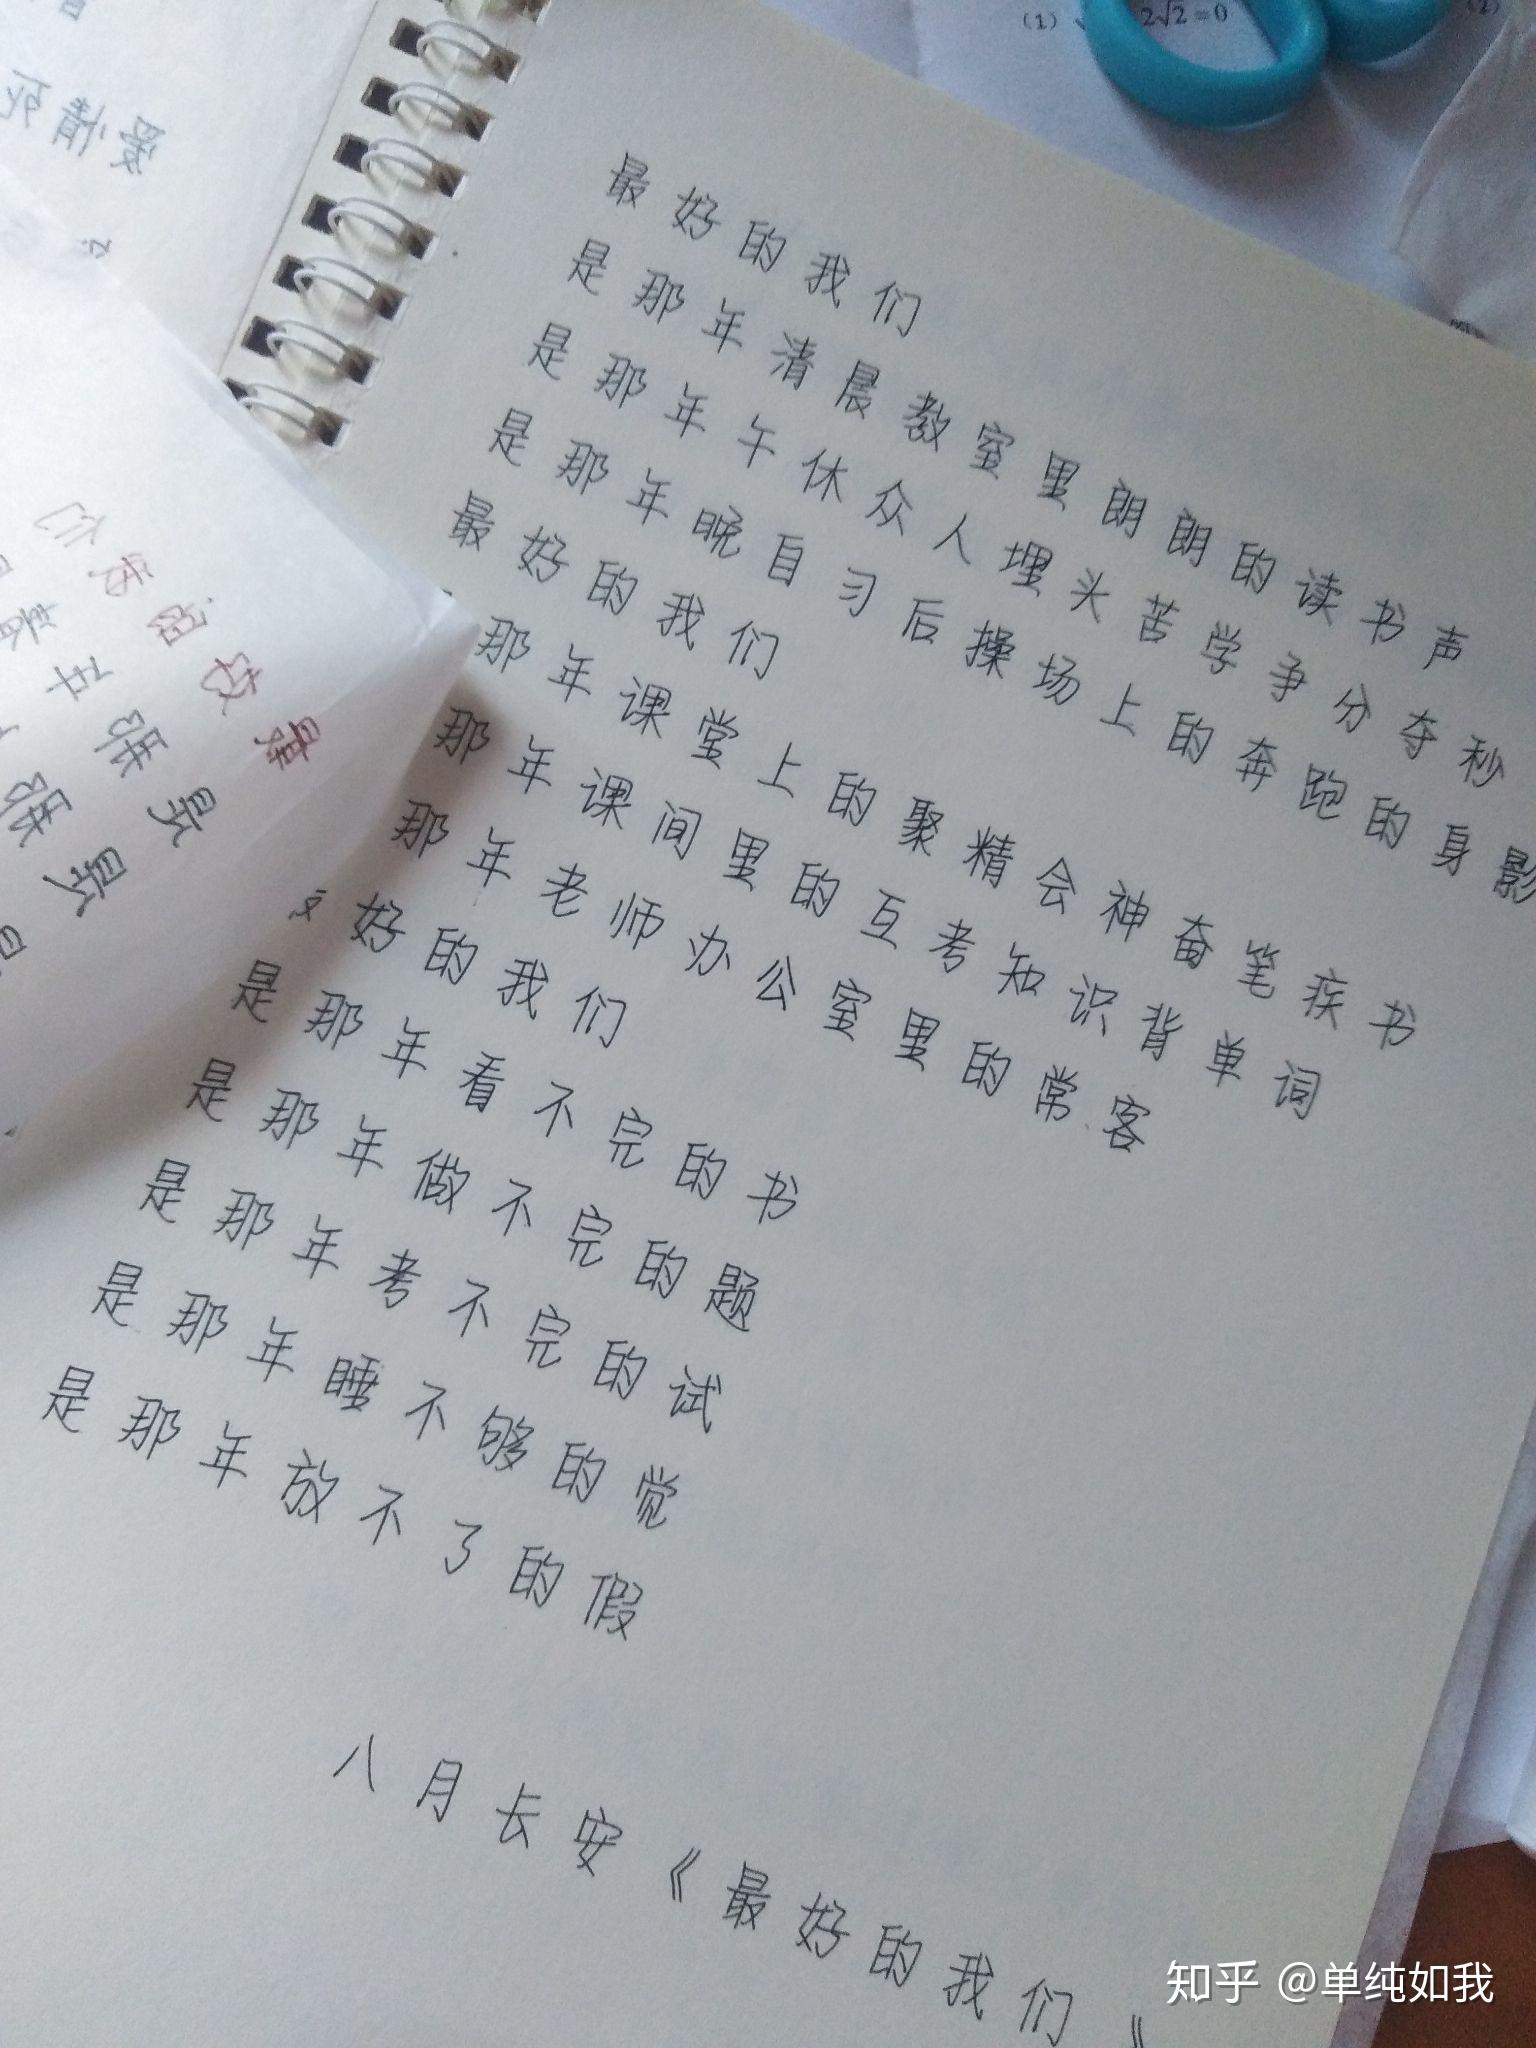 (1)
2√2=0
(2)
最好的我们
是那年清晨教室里朗朗的读书声
是那年午休众人埋头苦学争分夺秒
是那年晚自习后操场上的奔跑的身影
最好的我们
那年课堂上的聚精会神奋笔疾书
那年课间里的互考知识背单词
那年老师办公室里的常客
好的我们
是那年看不完的书
是那年做不完的题
是那年考不完的试
是那年睡不够的觉
是那年放不了的假
八月长安《最好的我们》
爱情
知乎 @单纯如我